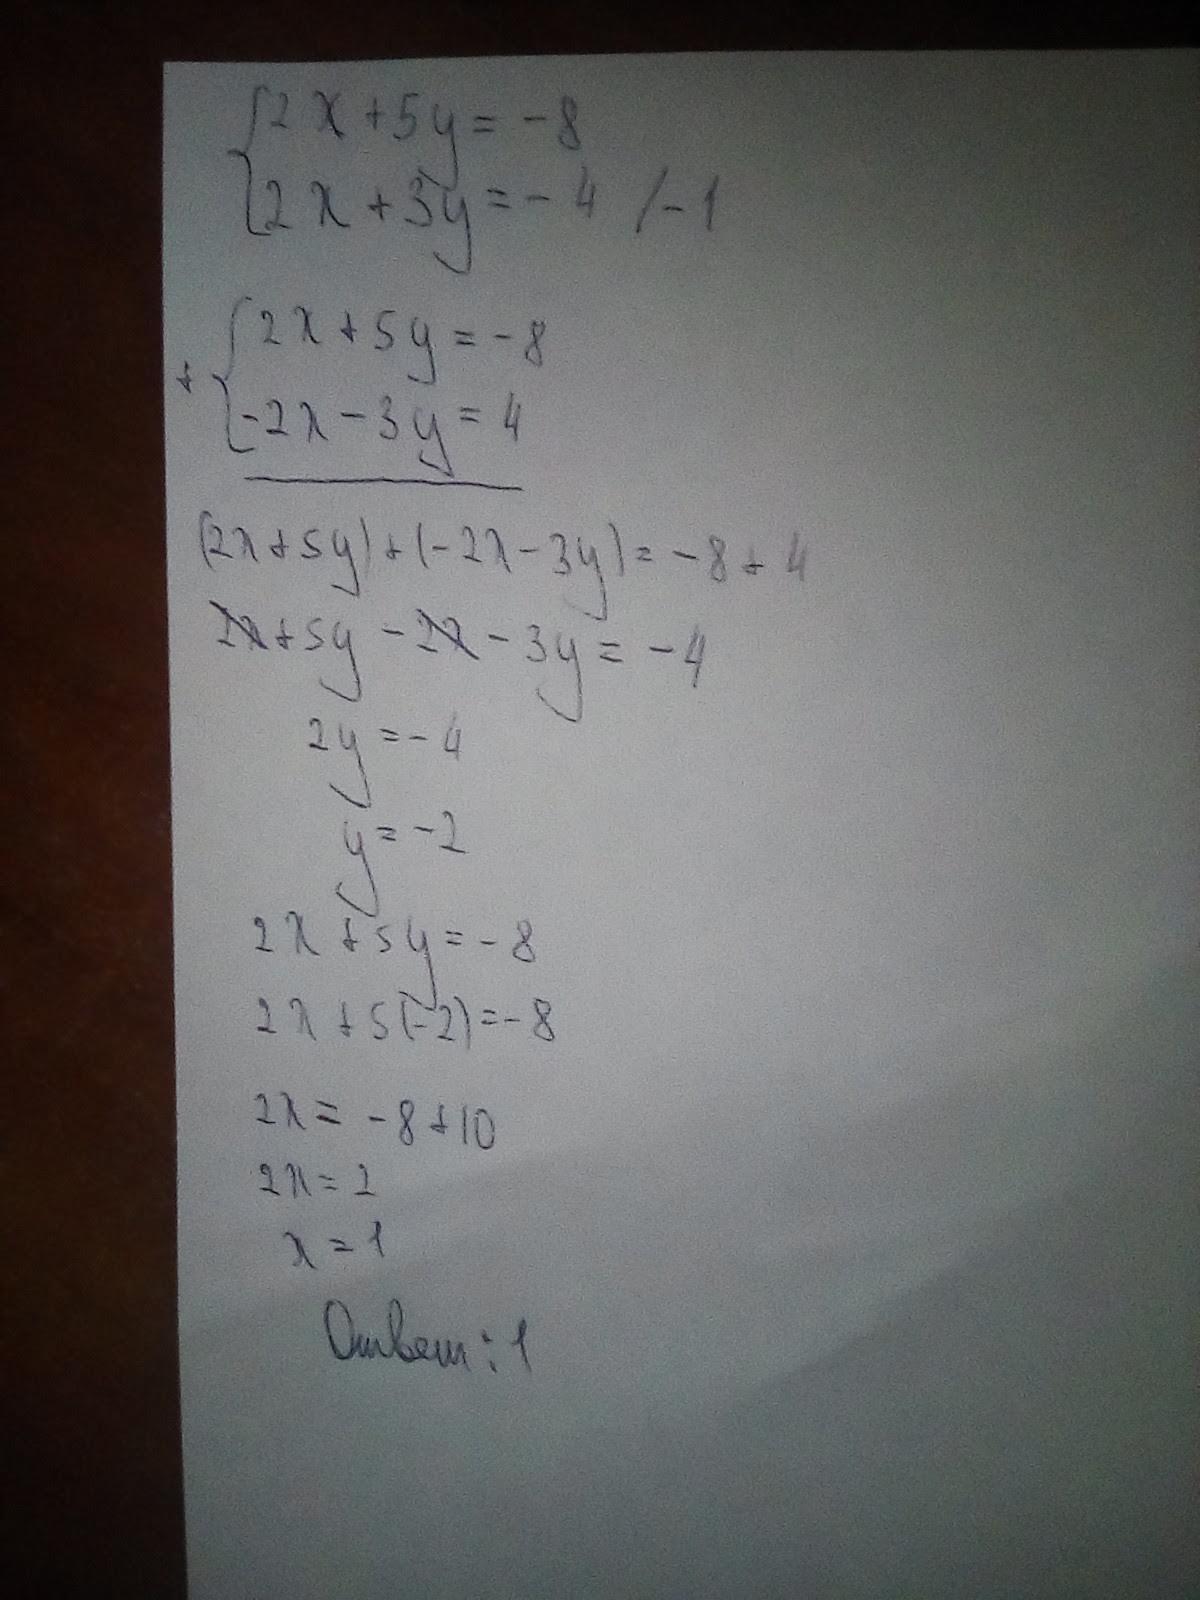 {2x+5y=-8
{2x+3y=-4 /-1
{2x+5y=-8
+
{-2x-3y=4
(2x+5y)+(-2x-3y)=-8+4
2x+5y-2x-3y=-4
2y=-4
y=-2
2x+5y=-8
2x+5(-2)=-8
2x=-8+10
2x=2
x=1
Ответ: 1